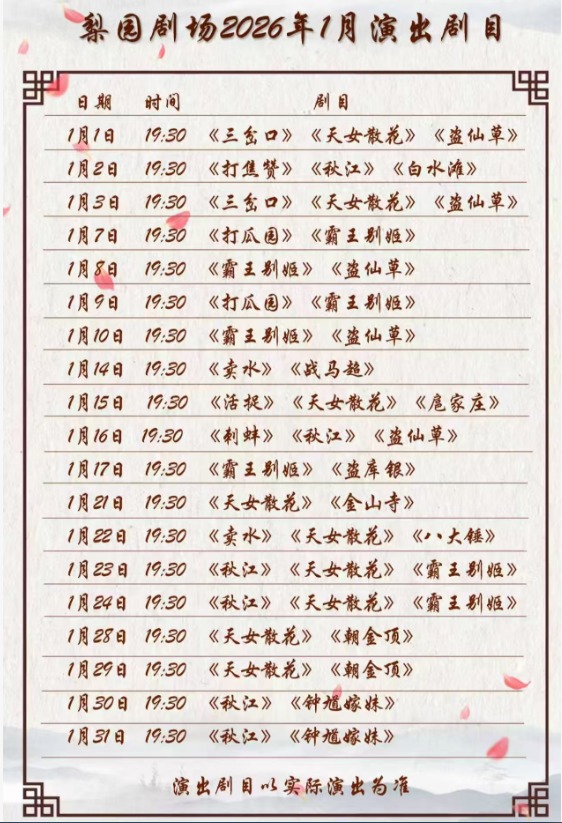 梨园剧场2026年1月演出剧目
日期 时间 剧目
1月1日 19:30 《三岔口》《天女散花》《盗仙草》
1月2日 19:30 《打焦赞》《秋江》《白水滩》
1月3日 19:30 《三岔口》《天女散花》《盗仙草》
1月7日 19:30 《打瓜园》《霸王别姬》
1月8日 19:30 《霸王别姬》《盗仙草》
1月9日 19:30 《打瓜园》《霸王别姬》
1月10日 19:30 《霸王别姬》《盗仙草》
1月14日 19:30 《卖水》《战马超》
1月15日 19:30 《活捉》《天女散花》《扈家庄》
1月16日 19:30 《刺蚌》《秋江》《盗仙草》
1月17日 19:30 《霸王别姬》《盗库银》
1月21日 19:30 《天女散花》《金山寺》
1月22日 19:30 《卖水》《天女散花》《八大锤》
1月23日 19:30 《秋江》《天女散花》《霸王别姬》
1月24日 19:30 《秋江》《天女散花》《霸王别姬》
1月28日 19:30 《天女散花》《朝金顶》
1月29日 19:30 《天女散花》《朝金顶》
1月30日 19:30 《秋江》《钟馗嫁妹》
1月31日 19:30 《秋江》《钟馗嫁妹》
演出剧目以实际演出为准